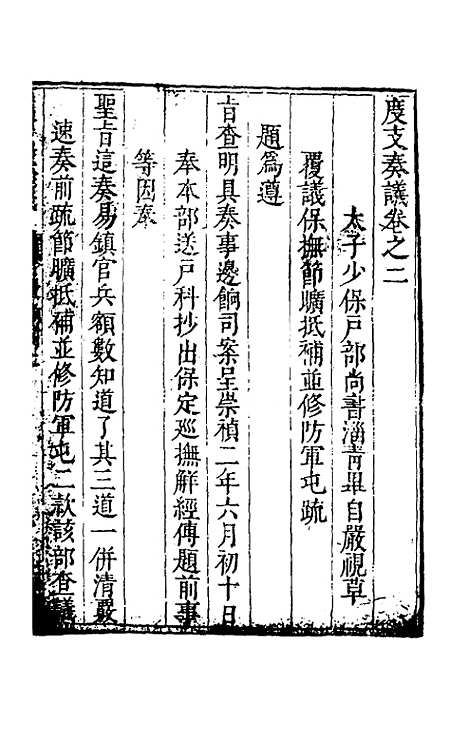 度支奏議卷之二
太子少保戶部尚書淄青畢自嚴視草
覆議保撫節曠抵補並修防軍屯疏
題爲遵
旨查明具奏事邊餉司案呈崇禎二年六月初十日
奉本部送戶科抄出保定巡撫解經傳題前事
等因奉
聖旨這奏易鎮官兵額數知道了其三道一併清覈
速奏前疏節曠抵補並修防軍屯二款該部查議